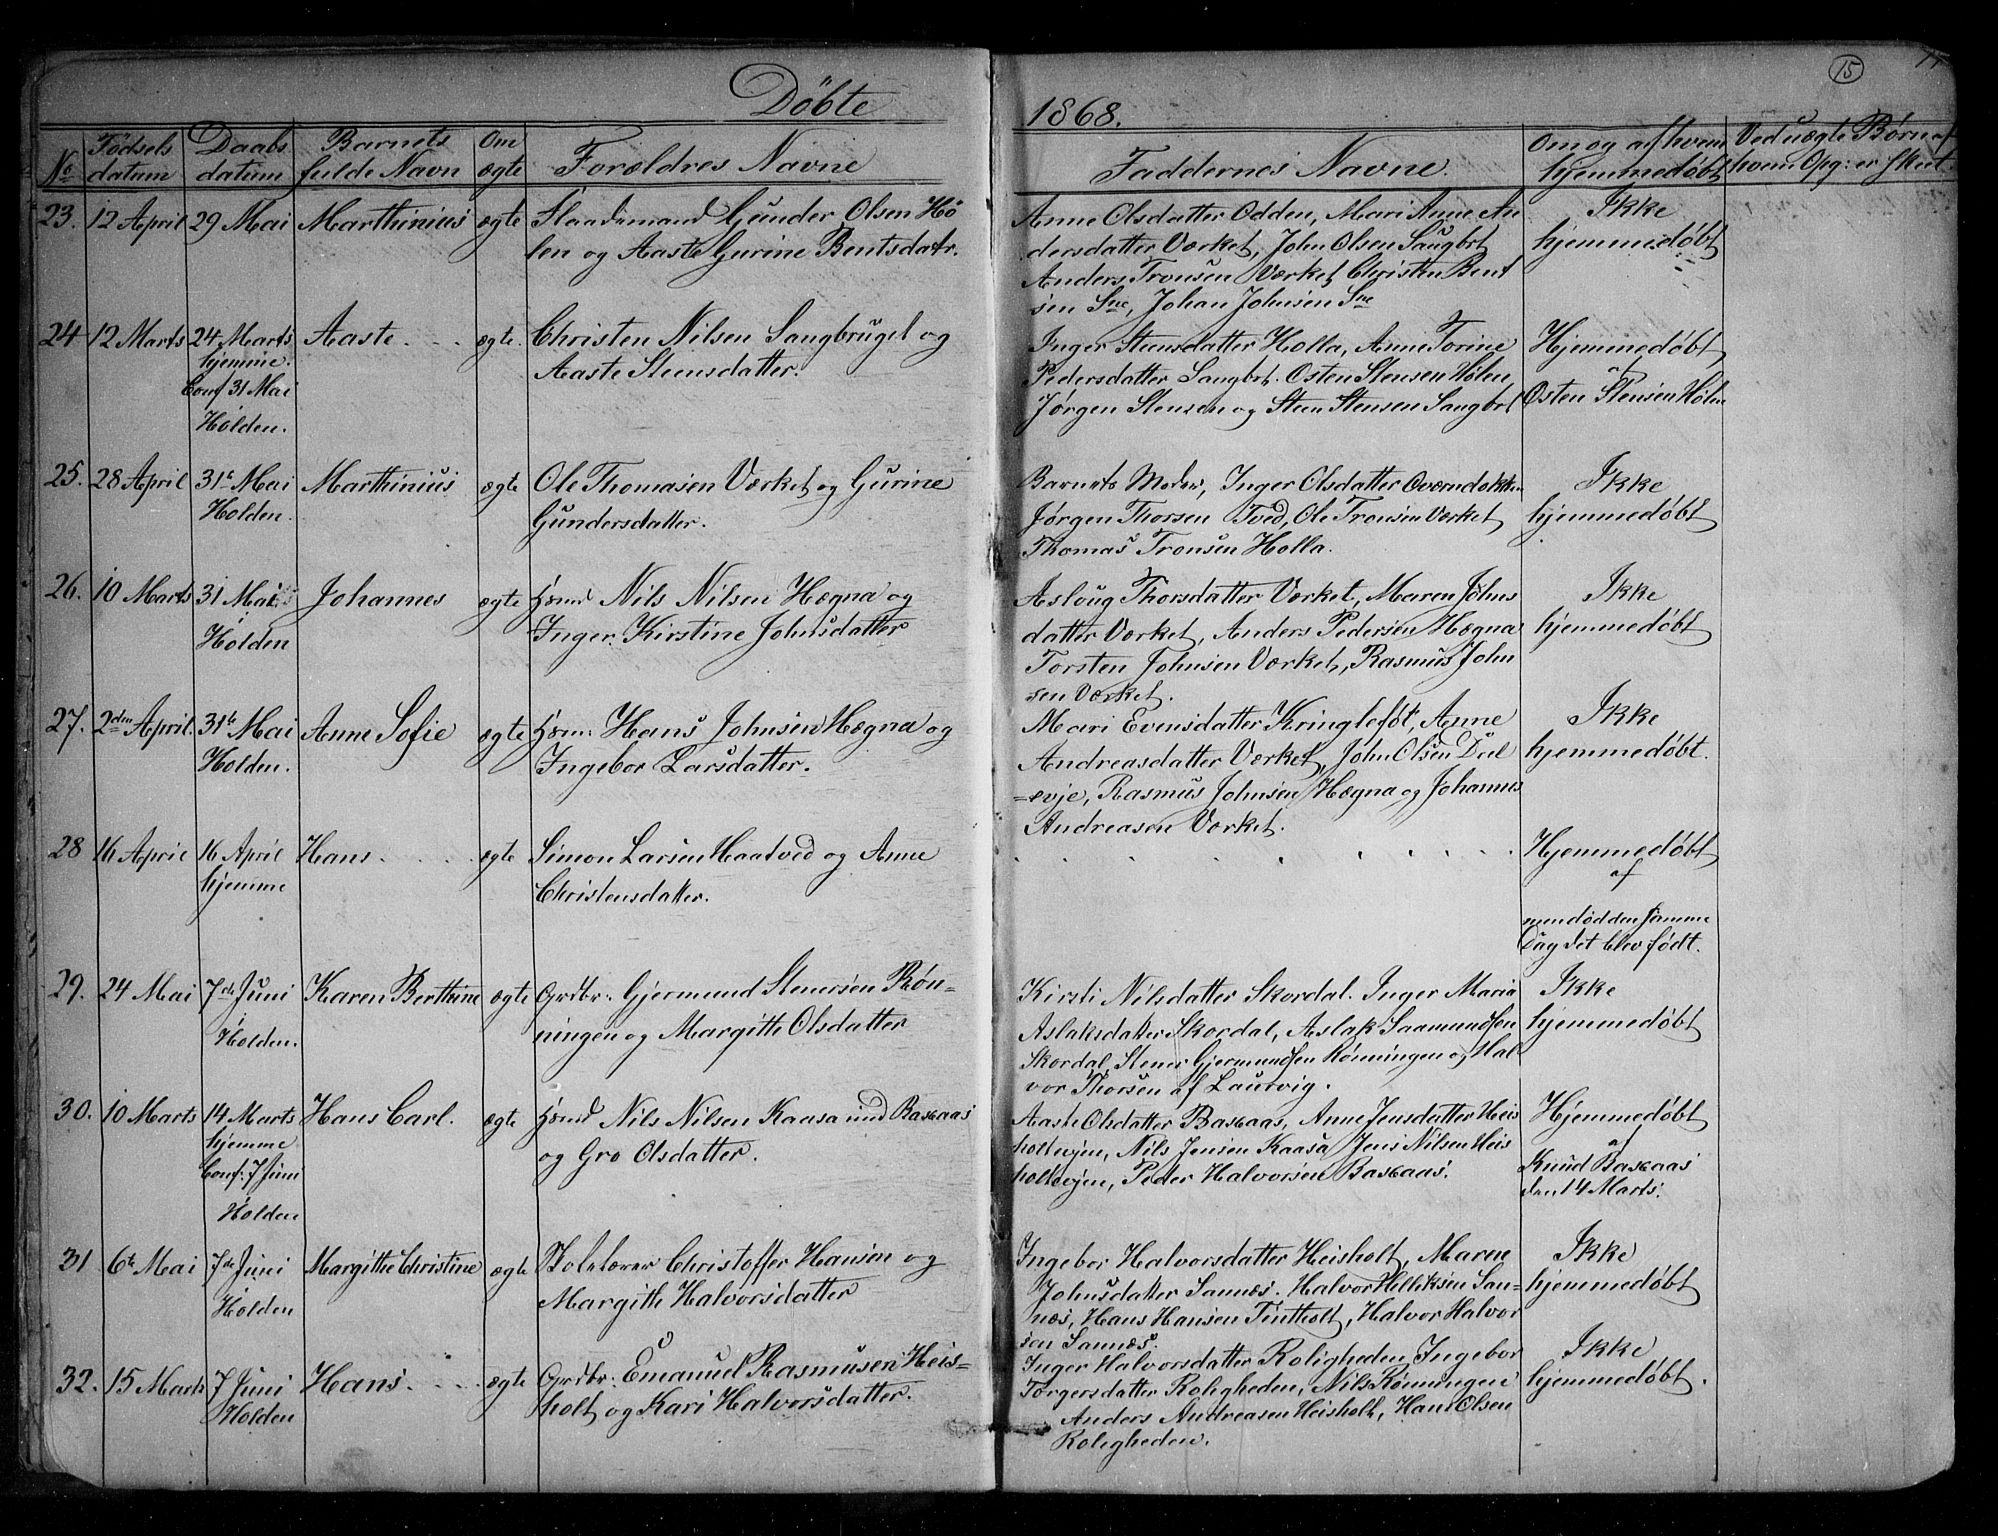 15
Døbte
1868.
No
Fødsels
datum
Daabs
datum
Barnets
fulde Navn
Om
ægte
Forældres Navne
Faddernes Navne.
Om og af hvem
hjemmedøbt
Ved uægte Børn af
hvem Opg: er skeet.
23. 12 April 29 Mai Marthinius ægte
Gunder Olsen Hö
len og Aaste Gurine Bentsdatr.
Anne Olsdatter Odden, Mari Anne An
dersdatter Værket, John Olsen Saugbrt
Anders Tronsen Værket Christen Bent
sen Sne, Johan Johnsen Sne
Ikke
hjemmedøbt
24 12 Marts 24 Marts
hjemme.
Conf 31 Mai
i
Holden.
Aaste ægte.
Christen Nilsen Saugbruget og
Aaste Stensdatter.
Inger Stensdatter Holla, Anne Torine
Pedersdatter Saugbrt. Osten Stensen Hølen,
Jørgen Stensen og Steen Stensen Saugbrt
Hjemmedøbt
af
Osten Stensen Hølen
25. 28 April 31te Mai
Holden.
Marthinius ægte
Ole Thomasen Værket og Gurine
Gundersdatter.
Barnets Moder, Inger Olsdatter
Jørgen Thorsen Tved, Ole Tronsen Værket
Thomas Tronsen Holla.
Ikke
hjemmedøbt
26. 10 Marts 31 Mai
i
Holden
Johannes ægte
Hsmd Nils Nilsen Hægna og
Inger Kirstine Johnsdatter
Asloug Thorsdatter Værket, Maren Johns
datter Værket, Anders Pedersen Hægna
Torsten Johnsen Værket, Rasmus John
sen Værket.
Ikke
hjemmedøbt
27. 2den April. 31te Mai
Holden.
Anne Sofie ægte
Hsm: Hans Johnsen Hægna og
Ingebor Larsdatter.
Mari Evensdatter Kringlefot, Anne
Andreasdatter Værket, John Olsen Dal
=evje, Rasmus Johnsen Hægna og Johannes
Andreasen Værket.
Ikke
hjemmedøbt.
28 16 April 16 April
hjemme
Hans ægte
Simon Larsen Haatved og Anne
Christensdatter.
Hjemmedøbt
af
men død den samme
Dag det blev født.
29. 24 Mai 7de Juni
i
Holden.
Karen Berthine ægte
Grdbr: Gjermund Stenersen Røn-
ningen og Margithe Olsdatter
Kirsti Nilsdatter Skordal. Inger Maria
Aslaksdatter Skordal, Aslak Saamundsen
Skordal, Stener Gjermundsen Rønningen og Hal
vor Thorsen af Laurvig.
Ikke
hjemmedøbt
30. 10 Marts 14 Marts
hjemme
Conf: 7 Juni
i
Holden
Hans Carl. ægte
Hsmd Nils Nilsen Kaasa ind Basaas
og Gro Olsdatter.
Aaste Olsdatter Basaas, Anne Jensdatter Heis
holtvejen, Nils Jensen Kaasa Jens Nilsen Heis
holtvejen, Peder Halvorsen Basaas.
Hjemmedøbt
af
Knud Basaas
den 14 Marts.
31 6te Mai 7de Juni
i
Holden
Margithe Christine ægte
Skolelærer Christoffer Hansen og
Margith Halvorsdatter
Ingebor Halvorsdatter Heisholt, Maren
Johnsdatter Sannæs. Halvor Helliksen San-
næs, Hans Hansen Tintholt, Halvor Halvor
sen Sannæs.
Ikke
hjemmedøbt
32. 15 Marts 7 Juni
Holden
Hans ægte
Grdbr: Emanuel Rasmusen Heis=
holt og Kari Halvorsdatter.
Inger Halvorsdatter Roligheden, Ingebor
Torgersdatter Roligheden, Nils Rønningen
Anders Andreasen Heisholt, Hans Olsen
Roligheden.
Ikke
hjemmedøbt.